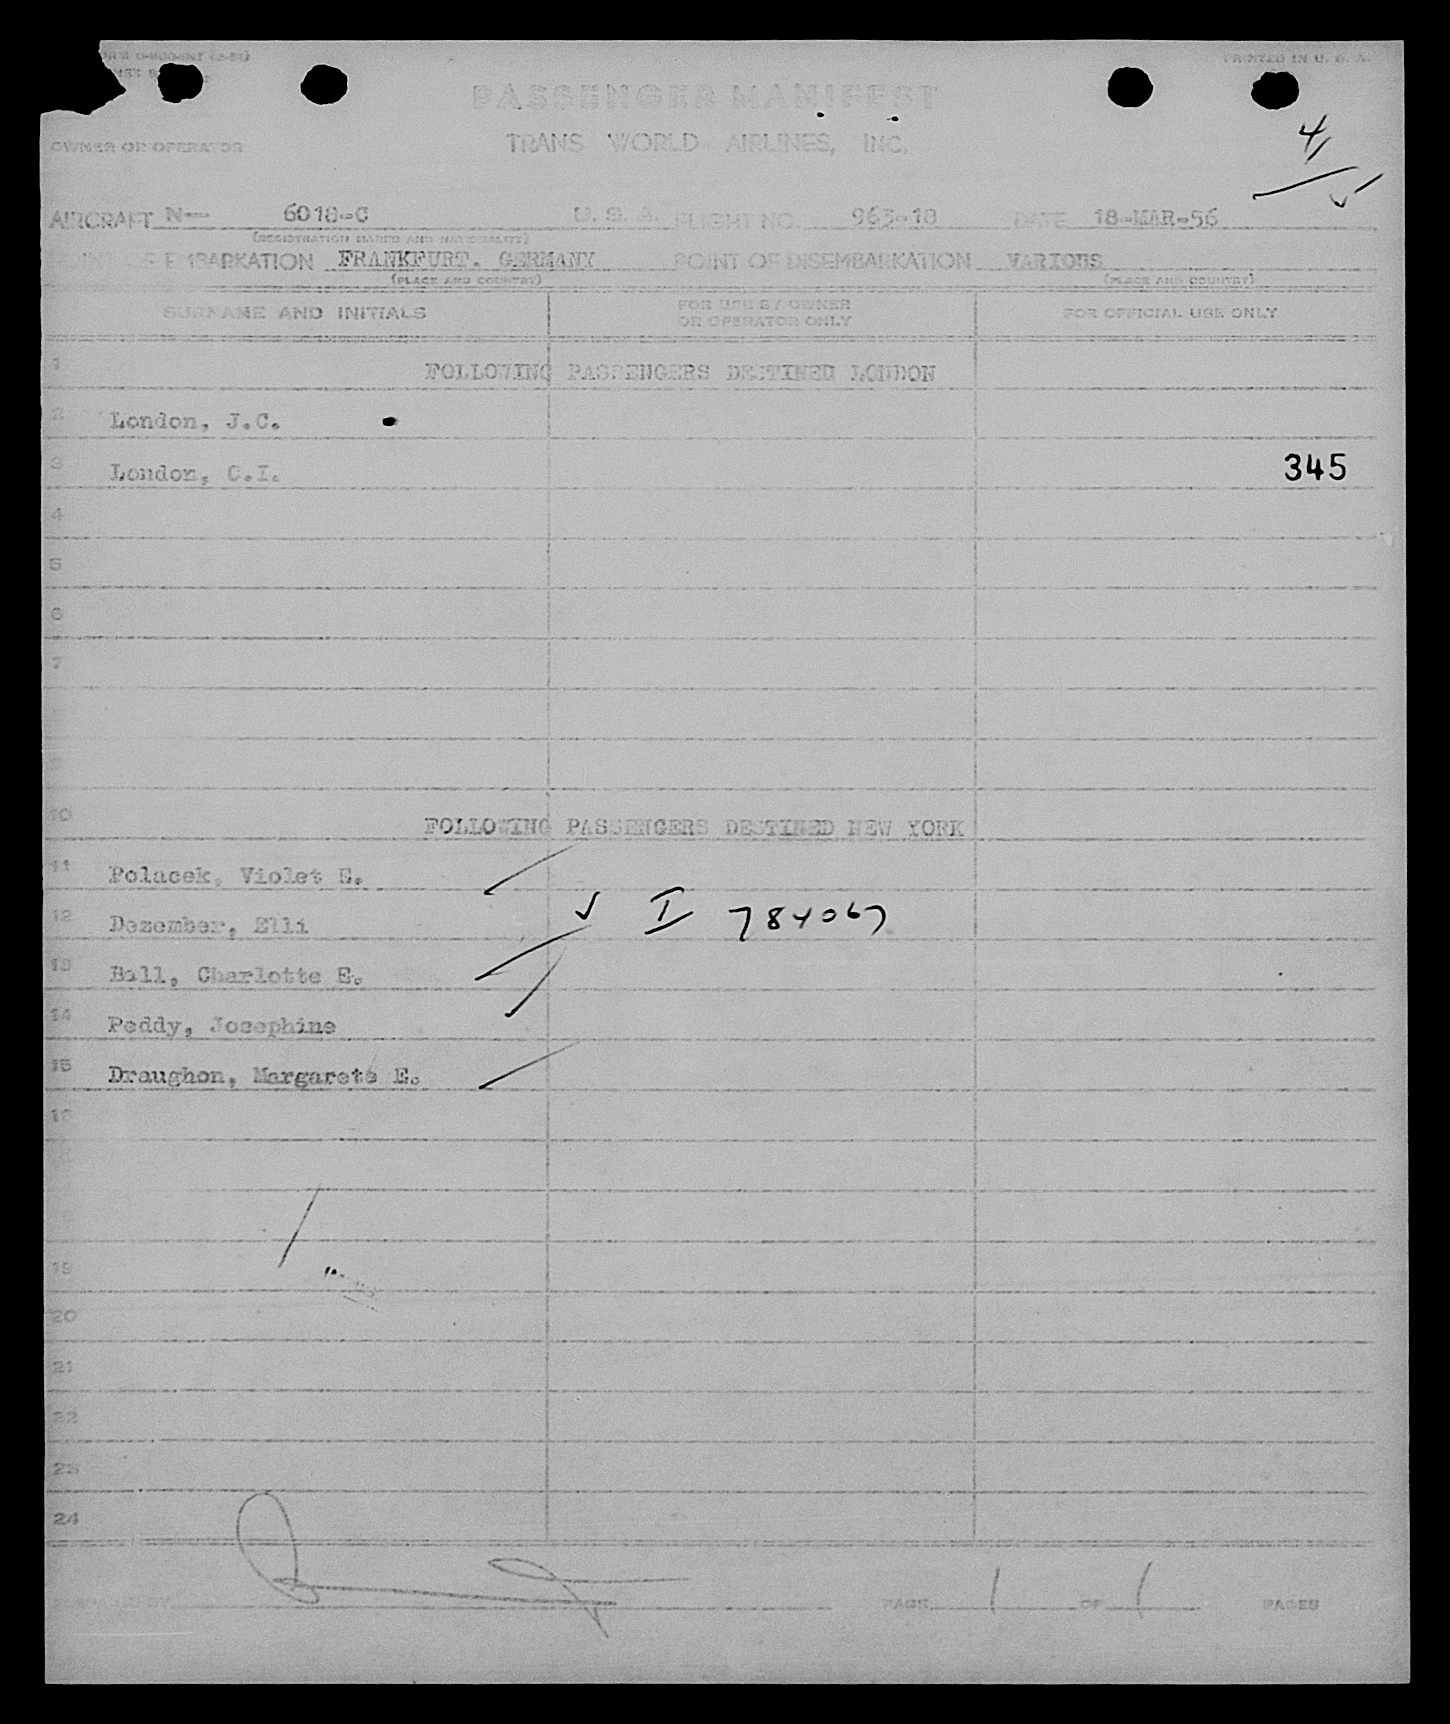 PRINTED IN U. S. A.
PASSENGER MANIFEST
OWNER OR OPERATOR TRANS WORLD AIRLINES, INC.
4/1
AIRCRAFT N-- 6018-C U. S. A. FLIGHT NO. 963-18 DATE 18-MAR-56
(REGISTRATION MARKS AND NATIONALITY)
EMBARKATION FRANKFURT. GERMANY POINT OF DISEMBARKATION VARIOUS
(PLACE AND COUNTRY) (PLACE AND COUNTRY)
SURNAME AND INITIALS FOR USE BY OWNER OR OPERATOR ONLY FOR OFFICIAL USE ONLY
1 FOLLOWING PASSENGERS DESTINED LONDON
2 London, J.C.
3 London, C.I. 345
4
5
6
7
10 FOLLOWING PASSENGERS DESTINED NEW YORK
11 Polacek, Violet E.
12 Dezember, Elli ✓ I 784067
13 Ball, Charlotte E.
14 Peddy, Josephine
15 Draughon, Margarete E.
16
19
20
21
22
23
24
PAGE 1 OF 1 PAGES